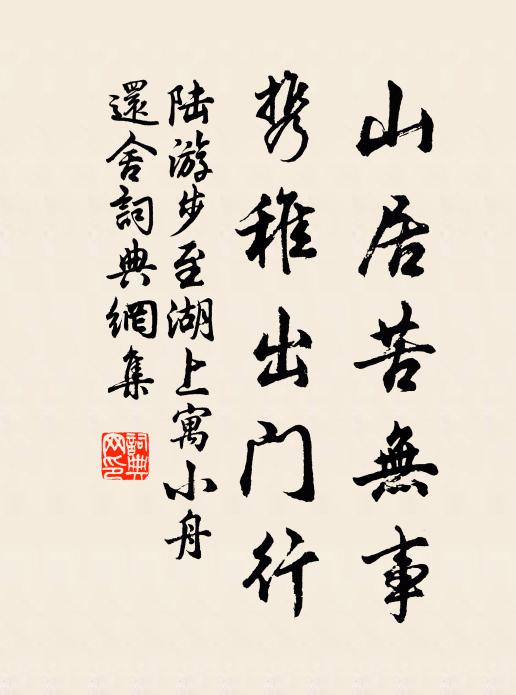 山居苦無事
携稚出門行
陆游步至湖上寓小舟
還舍詞典網集
詞典
网印